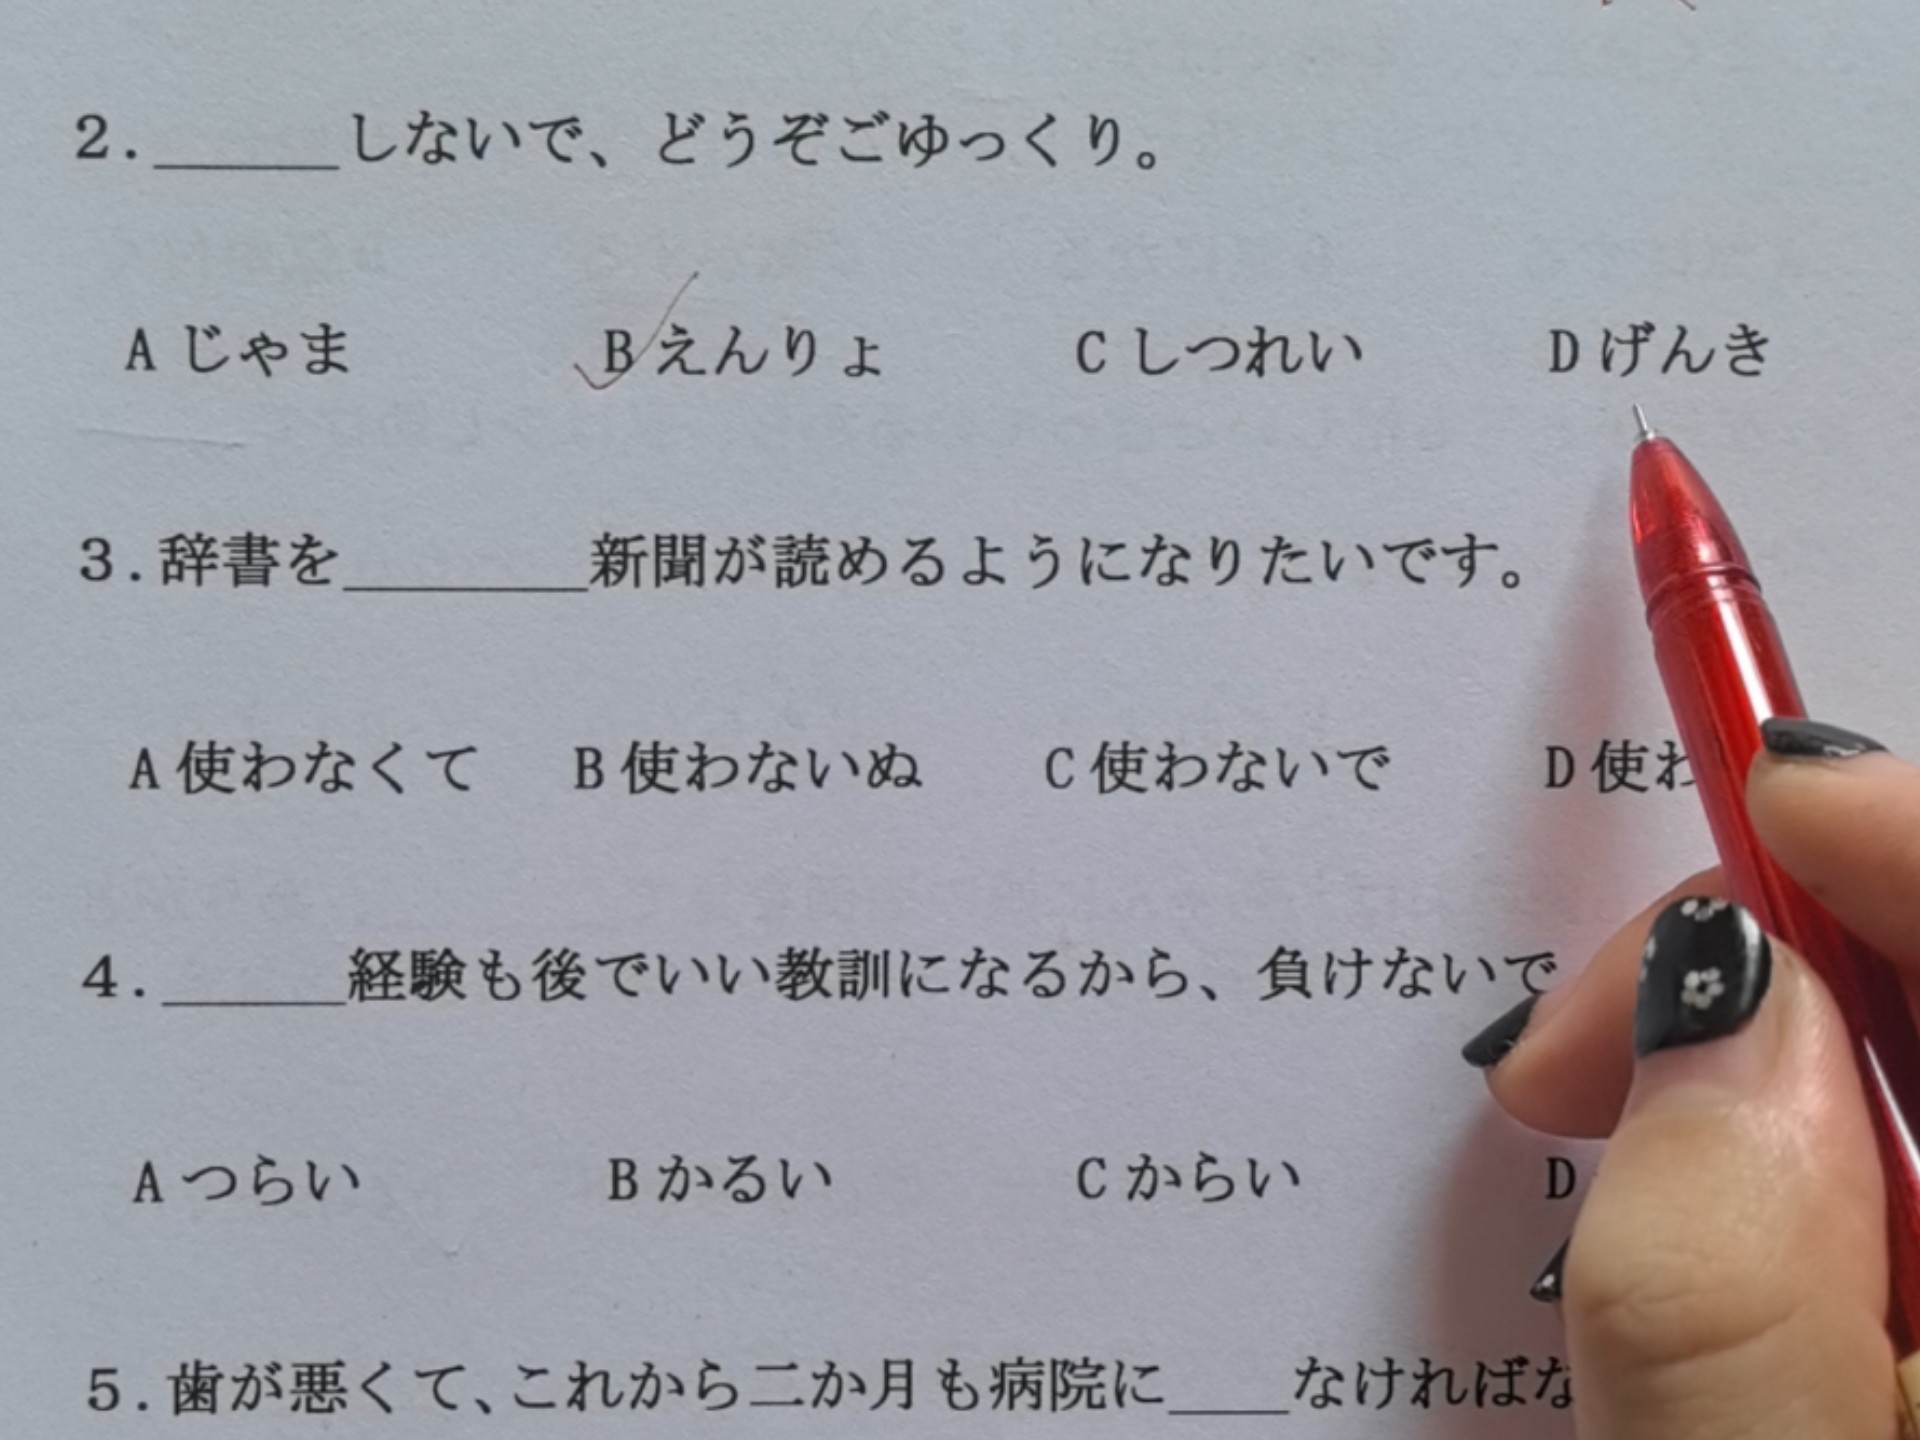 2.______しないで、どうぞごゆっくり。
A じゃま B えんりょ C しつれい D げんき
3.辞書を________新聞が読めるようになりたいです。
A 使わなくて B 使わないぬ C 使わないで D 使わ
4.______経験も後でいい教訓になるから、負けないで
A つらい B かるい C からい D
5.歯が悪くて、これから二か月も病院に____なければな